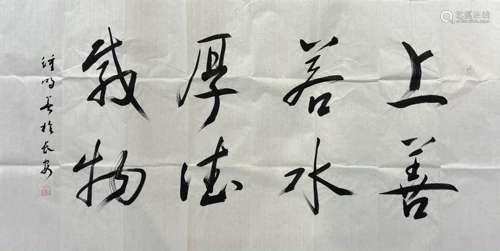 上善
若水
厚德
载物
钟鸣书于长安